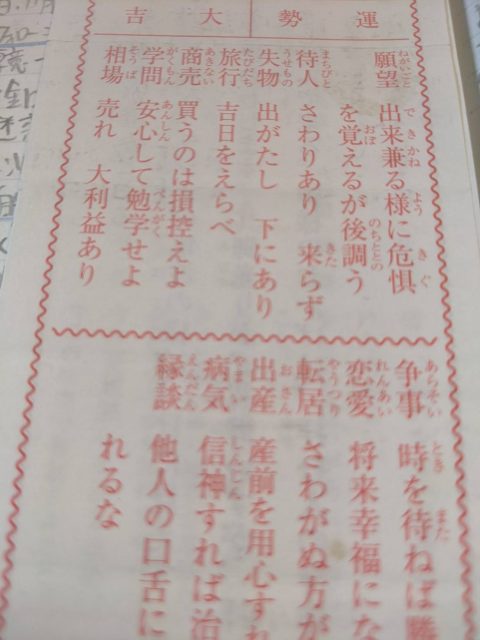 運勢 大吉
願望 出来兼る様に危惧
を覚えるが後調う
待人 さわりあり 来らず
失物 出がたし 下にあり
旅行 吉日をえらべ
商売 買うのは損控えよ
学問 安心して勉学せよ
相場 売れ 大利益あり
争事 時を待ねば勝
恋愛 将来幸福にな
転居 さわがぬ方が
出産 産前を用心すれ
病気 信神すれば治
縁談 他人の口舌に
れるな